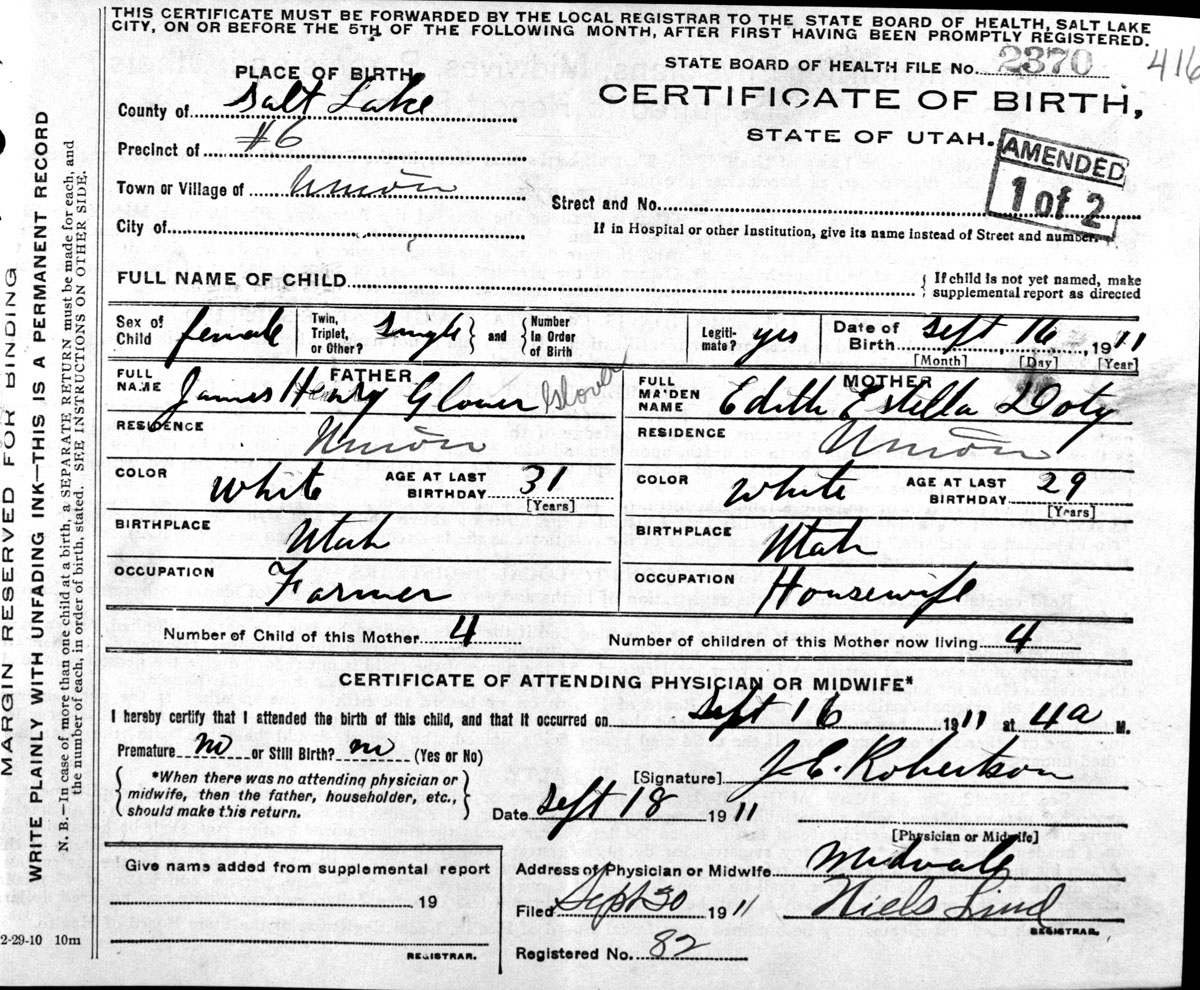 THIS CERTIFICATE MUST BE FORWARDED BY THE LOCAL REGISTRAR TO THE STATE BOARD OF HEALTH, SALT LAKE
CITY, ON OR BEFORE THE 5TH OF THE FOLLOWING MONTH, AFTER FIRST HAVING BEEN PROMPTLY REGISTERED.
STATE BOARD OF HEALTH FILE No. 2370 416
PLACE OF BIRTH
CERTIFICATE OF BIRTH,
STATE OF UTAH.
AMENDED
1 of 2
County of Salt Lake
Precinct of #6
Town or Village of Union
Street and No.
City of
If in Hospital or other Institution, give its name instead of Street and number.
FULL NAME OF CHILD
{ If child is not yet named, make
supplemental report as directed
Sex of Child female
Twin, Triplet, or Other? Single } and { Number In Order of Birth
Legiti-mate? yes
Date of Birth Sept 16, 1911
[Month] [Day] [Year]
FATHER
FULL NAME James Henry Glover Glover
MOTHER
FULL MAIDEN NAME Edith Estella Doty
RESIDENCE Union
RESIDENCE Union
COLOR White AGE AT LAST BIRTHDAY 31 [Years]
COLOR White AGE AT LAST BIRTHDAY 29 [Years]
BIRTHPLACE Utah
BIRTHPLACE Utah
OCCUPATION Farmer
OCCUPATION Housewife
Number of Child of this Mother 4
Number of children of this Mother now living 4
CERTIFICATE OF ATTENDING PHYSICIAN OR MIDWIFE*
I hereby certify that I attended the birth of this child, and that it occurred on Sept 16 1911 at 4a M.
Premature no or Still Birth? no (Yes or No)
{ *When there was no attending physician or
midwife, then the father, householder, etc.,
should make this return. }
[Signature] J.C. Robertson
Date Sept 18 1911
[Physician or Midwife]
Give name added from supplemental report
19
REGISTRAR.
Address of Physician or Midwife Midvale
Filed Sept 30 1911 Niels Lind
REGISTRAR.
Registered No. 82
2-29-10 10m
MARGIN RESERVED FOR BINDING
WRITE PLAINLY WITH UNFADING INK—THIS IS A PERMANENT RECORD
N. B.—In case of more than one child at a birth, a SEPARATE RETURN must be made for each, and
the number of each, in order of birth, stated. SEE INSTRUCTIONS ON OTHER SIDE.